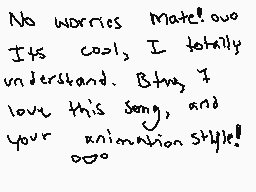 No worries Mate! ouo
Its cool, I totally
understand. Btw, I
love this song, and
your animation style!